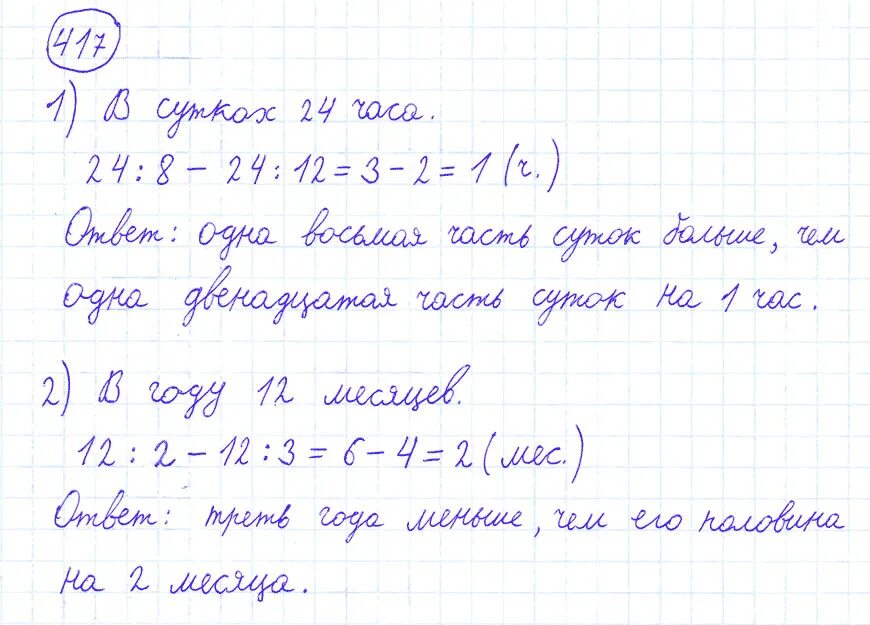 417
1) В сутках 24 часа.
24 : 8 – 24 : 12 = 3 – 2 = 1 (ч.)
Ответ: одна восьмая часть суток больше, чем
одна двенадцатая часть суток на 1 час.
2) В году 12 месяцев.
12 : 2 – 12 : 3 = 6 – 4 = 2 (мес.)
Ответ: треть года меньше, чем его половина
на 2 месяца.